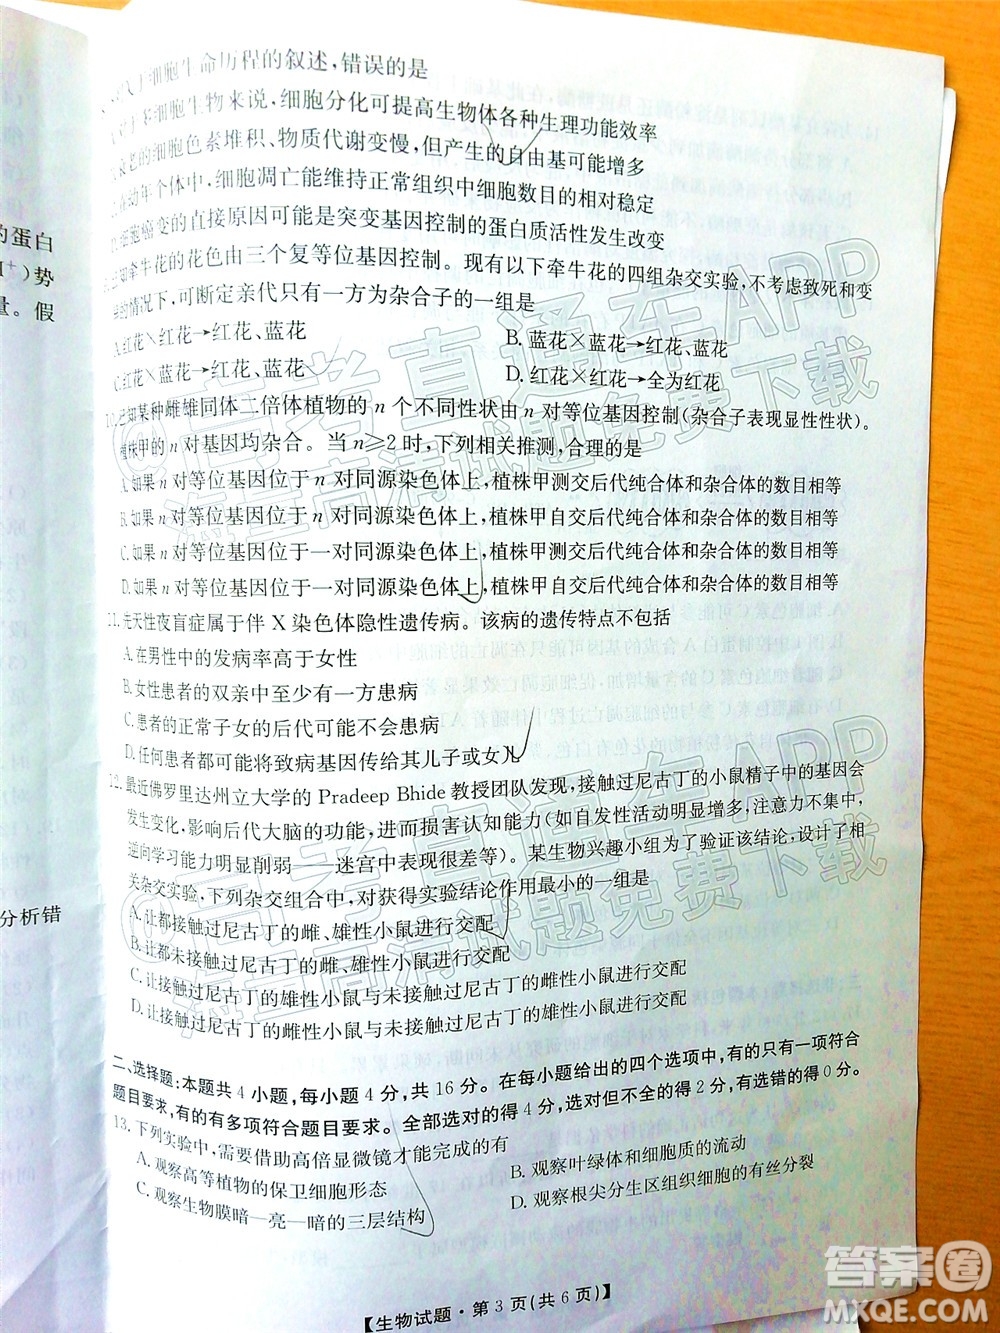 于细胞生命历程的叙述，错误的是
对于多细胞生物来说，细胞分化可提高生物体各种生理功能效率
衰老的细胞色素堆积、物质代谢变慢，但产生的自由基可能增多
在幼年个体中，细胞凋亡能维持正常组织中细胞数目的相对稳定
细胞癌变的直接原因可能是突变基因控制的蛋白质活性发生改变
已知牵牛花的花色由三个复等位基因控制。现有以下牵牛花的四组杂交实验，不考虑致死和变
的情况下，可断定亲代只有一方为杂合子的一组是
A.红花×红花→红花、蓝花
B.蓝花×蓝花→红花、蓝花
C.红花×蓝花→红花、蓝花
D.红花×红花→全为红花
10.已知某种雌雄同体二倍体植物的 n 个不同性状由 n 对等位基因控制(杂合子表现显性性状)。
植株甲的 n 对基因均杂合。当 n≥2时，下列相关推测，合理的是
A.如果 n 对等位基因位于 n 对同源染色体上，植株甲测交后代纯合体和杂合体的数目相等
B.如果 n 对等位基因位于 n 对同源染色体上，植株甲自交后代纯合体和杂合体的数目相等
C.如果 n 对等位基因位于一对同源染色体上，植株甲测交后代纯合体和杂合体的数目相等
D.如果 n 对等位基因位于一对同源染色体上，植株甲自交后代纯合体和杂合体的数目相等
11.先天性夜盲症属于伴 X 染色体隐性遗传病。该病的遗传特点不包括
A.在男性中的发病率高于女性
B.女性患者的双亲中至少有一方患病
C.患者的正常子女的后代可能不会患病
D.任何患者都可能将致病基因传给其儿子或女儿
12.最近佛罗里达州立大学的 Pradeep Bhide 教授团队发现，接触过尼古丁的小鼠精子中的基因会
发生变化，影响后代大脑的功能，进而损害认知能力(如自发性活动明显增多，注意力不集中，
逆向学习能力明显削弱——迷宫中表现很差等)。某生物兴趣小组为了验证该结论，设计了相
关杂交实验，下列杂交组合中，对获得实验结论作用最小的一组是
A.让都接触过尼古丁的雌、雄性小鼠进行交配
B.让都未接触过尼古丁的雌、雄性小鼠进行交配
C.让接触过尼古丁的雄性小鼠与未接触过尼古丁的雌性小鼠进行交配
D.让接触过尼古丁的雌性小鼠与未接触过尼古丁的雄性小鼠进行交配
二、选择题：本题共 4 小题，每小题 4 分，共 16 分。在每小题给出的四个选项中，有的只有一项符合
题目要求，有的有多项符合题目要求。全部选对的得 4 分，选对但不全的得 2 分，有选错的得 0 分。
13.下列实验中，需要借助高倍显微镜才能完成的有
A.观察高等植物的保卫细胞形态
B.观察叶绿体和细胞质的流动
C.观察生物膜暗—亮—暗的三层结构
D.观察根尖分生区组织细胞的有丝分裂
【生物试题·第 3 页(共 6 页)】
的蛋白
I⁺)势
量。假
分析错
@高考直通车APP
海量高清试题免费下载
@高考直通车APP
海量高清试题免费下载
答案圈
MXQE.COM